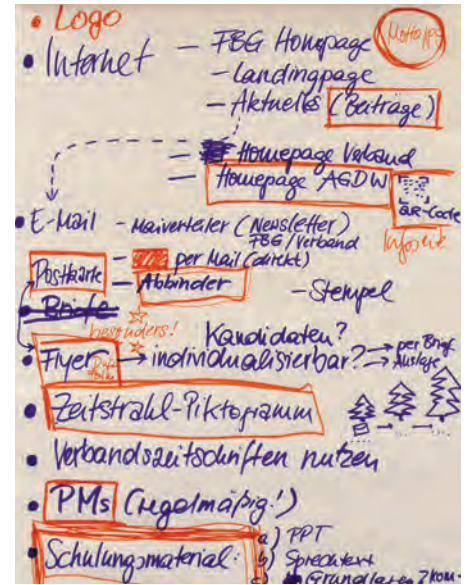 • Logo
Motto
• Internet – FBG Homepage
– Landingpage
– Aktuelles (Beiträge)
– Homepage Verband
– Homepage AGDW
QR-Code
Infoseite
• E-Mail – Mailverteiler (Newsletter)
FBG/Verband
– per Mail (direkt)
Postkarte – Abbinder
– Stempel
• Briefe
besonders!
Kandidaten?
• Flyer → individualisierbar? → per Brief
→ Auslage
• Zeitstrahl-Piktogramm
• Verbandszeitschriften nutzen
• PMs (regelmäßig!)
• Schulungsmaterial: a) PPT
b) Sprechtext
c)